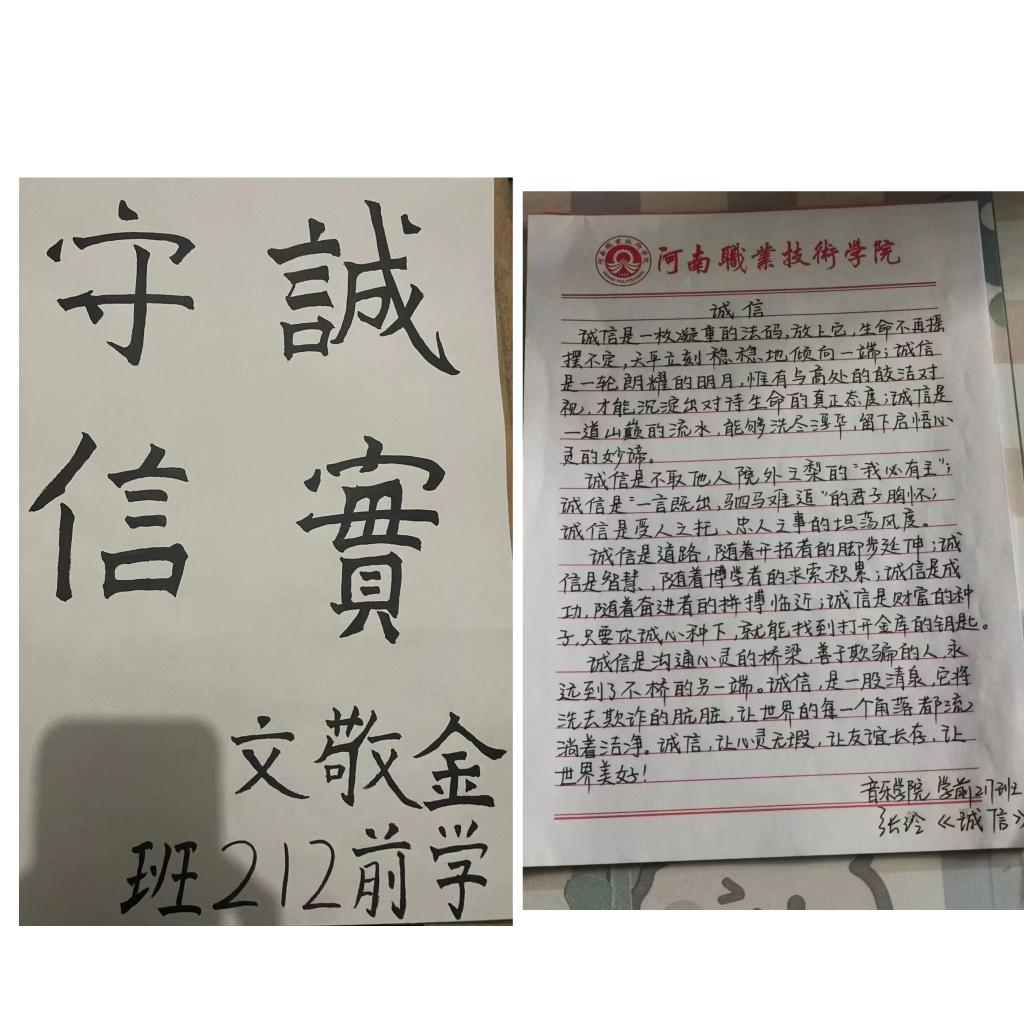 誠實
守信
金敬文
学前212班
河南職業技術学院
诚信
诚信是一枚凝重的法码,放上它,生命不再摇
摆不定,天平立刻稳稳地倾向一端;诚信
是一轮朗耀的明月,惟有与高处的皎洁对
视,才能沉淀出对待生命的真正态度;诚信是
一道山巅的流水,能够洗尽浮华,留下启悟心
灵的妙谛。
诚信是不取他人院外之梨的“我必有主”;
诚信是“一言既出,驷马难追”的君子胸怀;
诚信是受人之托、忠人之事的坦荡风度。
诚信是道路,随着开拓者的脚步延伸;诚
信是智慧,随着博学者的求索积累;诚信是成
功,随着奋进者的拼搏临近;诚信是财富的种
子,只要你诚心种下,就能找到打开金库的钥匙。
诚信是沟通心灵的桥梁,善于欺骗的人,永
远到了不桥的另一端。诚信,是一股清泉,它将
洗去欺诈的肮脏,让世界的每一个角落都流
淌着洁净。诚信,让心灵无瑕,让友谊长存,让
世界美好!
音乐学院 学前217班
张玲《诚信》